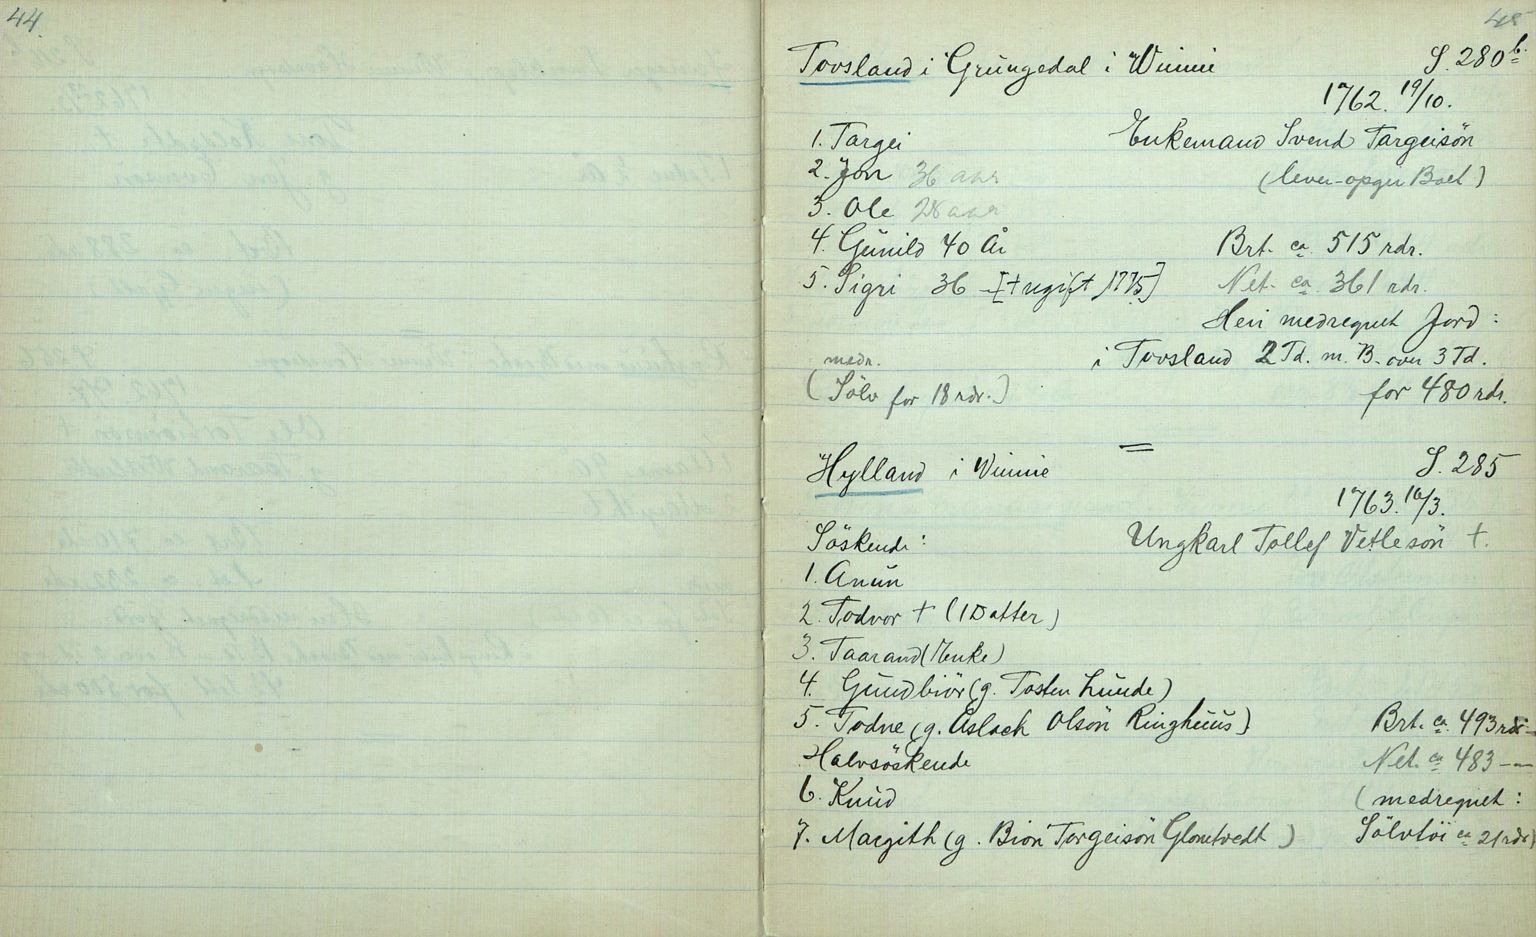 44.
45
Tovsland i Grungedal i Winnie S. 280b.
1762. 19/10.
1. Targei Enkemand Svend Targeisön
2. Jon 36 aar (lever-opgir Boet)
3. Ole 28 aar
4. Gunild 40 År Brt. ca 515 rdr.
5. Sigri 36 [† ugift 1775] Net. ca 361 rdr.
Heri medregnet Jord:
i Tovsland 2 Td. m. B. over 3 Td.
medr.
(Sölv for 18 rdr.) for 480 rdr.
=
Hylland i Winnie S. 285
1763. 10/3.
Söskende: Ungkarl Tollef Vetlesön †.
1. Anun
2. Todvor † (1 Datter)
3. Taarand (Enke)
4. Gundbiör (g. Tosten Lunde)
5. Todne (g. Aslack Olsön Ringhuus) Brt. ca. 493 rdr.
Halvsöskende Net. ca 483 -
6. Knud (medregnet:
7. Margith (g. Biön Torgeisön Glomtvedt) Sölvtöi ca 21 rdr)